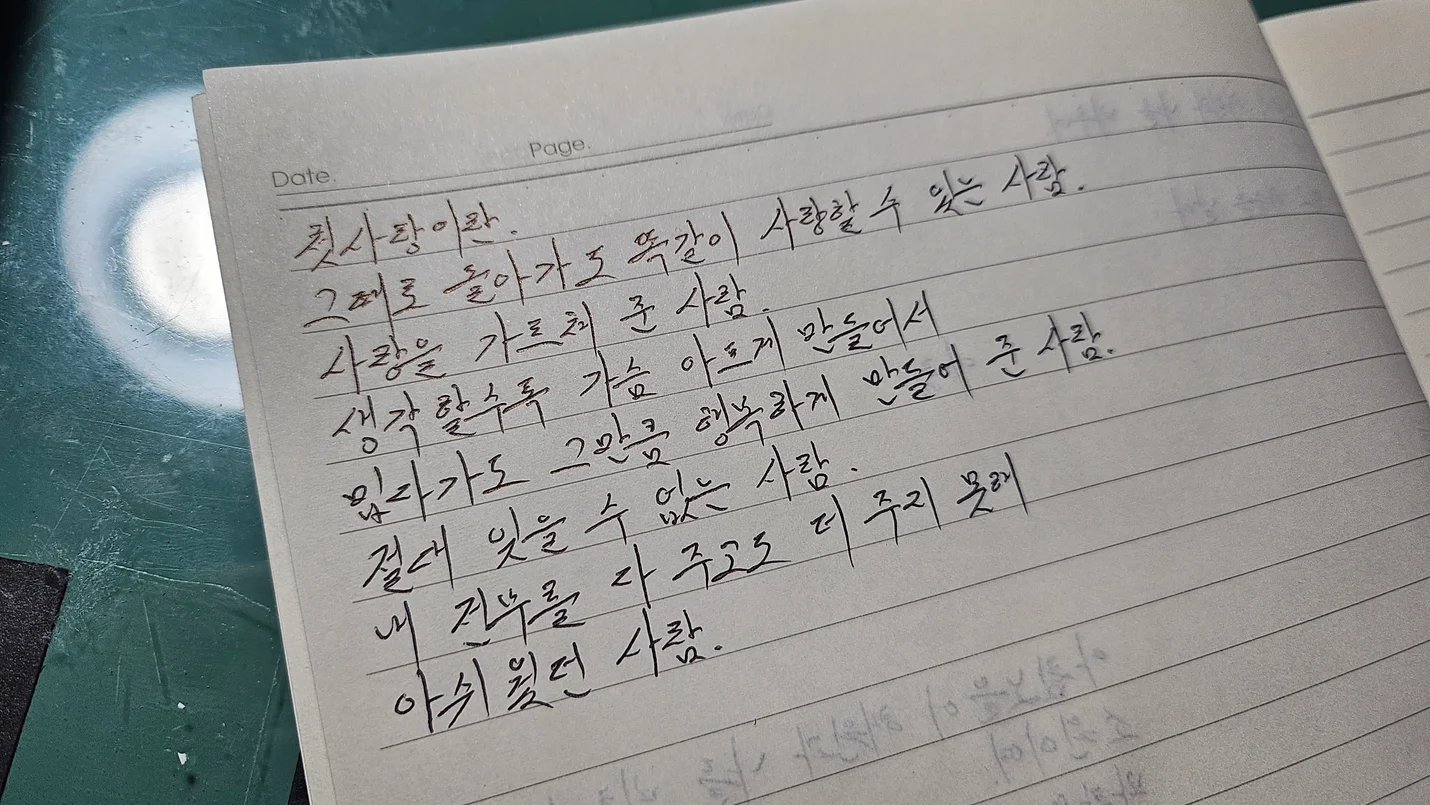 Page.
Date.
첫사랑이란.
그때로 돌아가도 똑같이 사랑할 수 있는 사람.
사랑을 가르쳐 준 사람.
생각할수록 가슴 아프게 만들어서
밉다가도 그만큼 행복하게 만들어 준 사람.
절대 잊을 수 없는 사람.
내 전부를 다 주고도 더 주지 못해
아쉬웠던 사람.